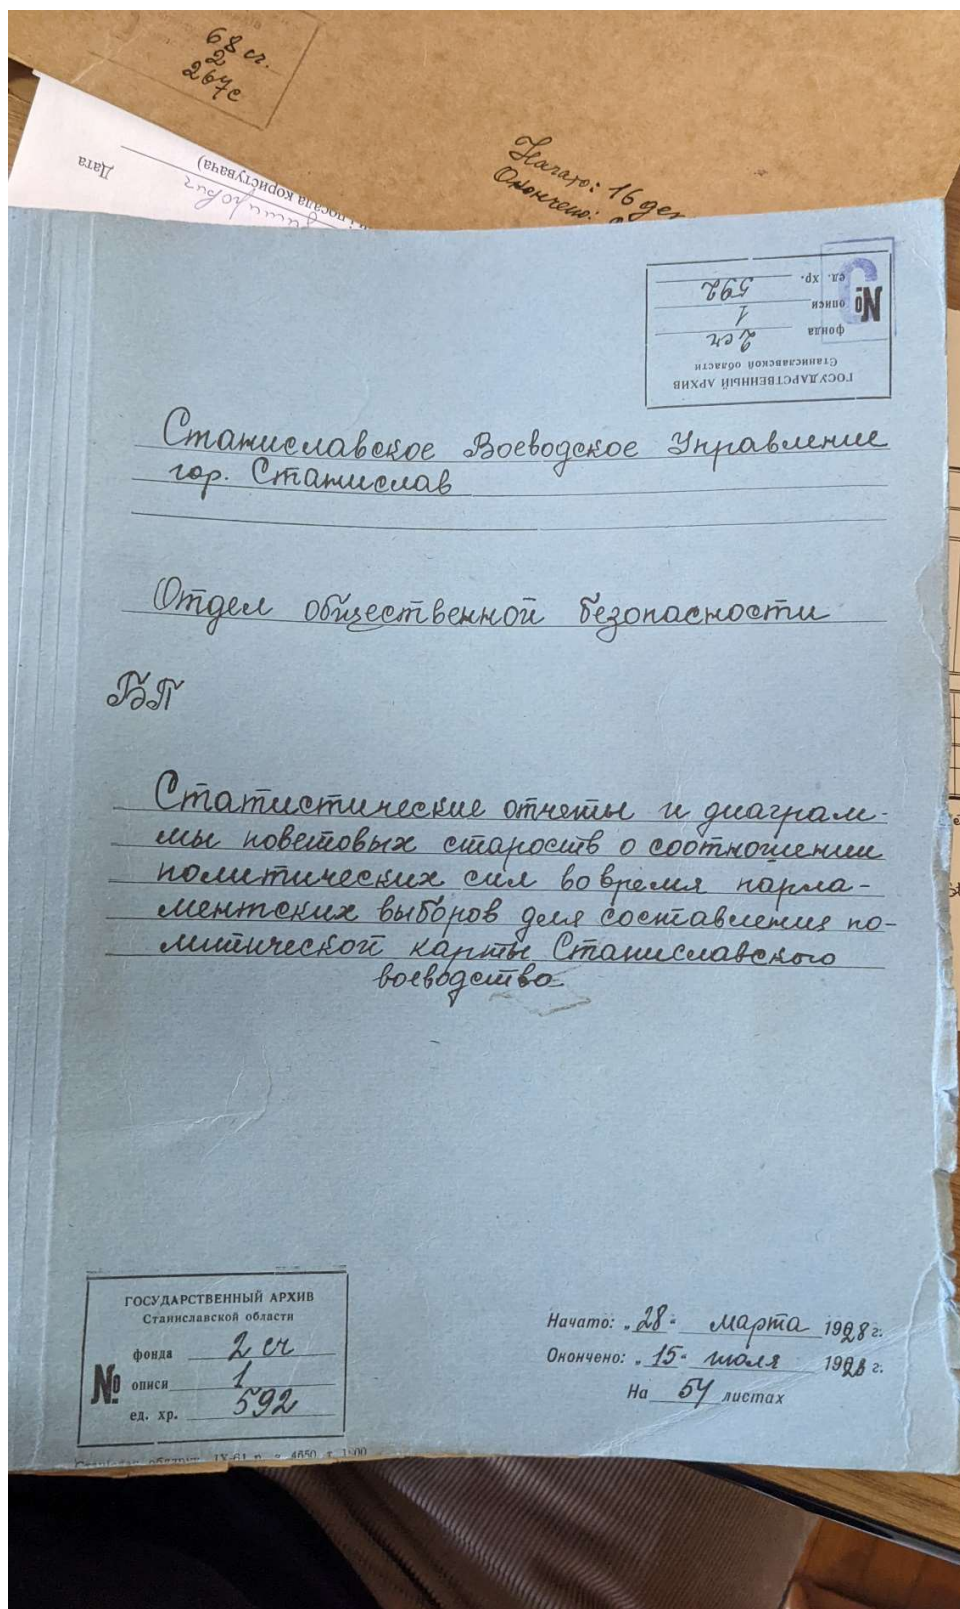 68 сч.
2
267с
Начато: 16 дек
Окончено:
Дата
посада користувача)
ГОСУДАРСТВЕННЫЙ АРХИВ
Станиславской области
фонда 2 сч
№ описи 1
ед. хр. 592
Станиславское Воеводское Управление
гор. Станислав
Отдел общественной безопасности
БП
Статистические отчеты и диаграм-
мы поветовых староств о соотношении
политических сил во время парла-
ментских выборов для составления по-
литической карты Станиславского
воеводства
ГОСУДАРСТВЕННЫЙ АРХИВ
Станиславской области
фонда 2 сч
№ описи 1
ед. хр. 592
Начато: "28" марта 1928 г.
Окончено: "15" июля 1928 г.
На 54 листах